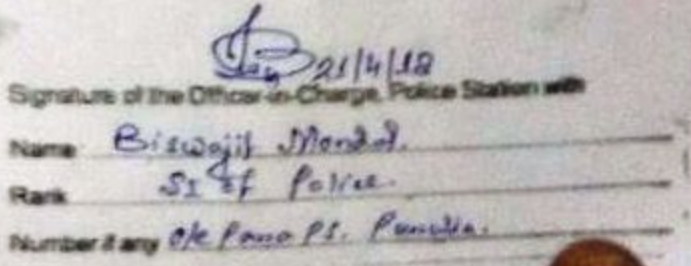 21/4/18
Signature of the Officer-in-Charge, Police Station with
Name Biswajit Mondal.
Rank SI of Police.
Number if any O/C Para PS. Purulia.